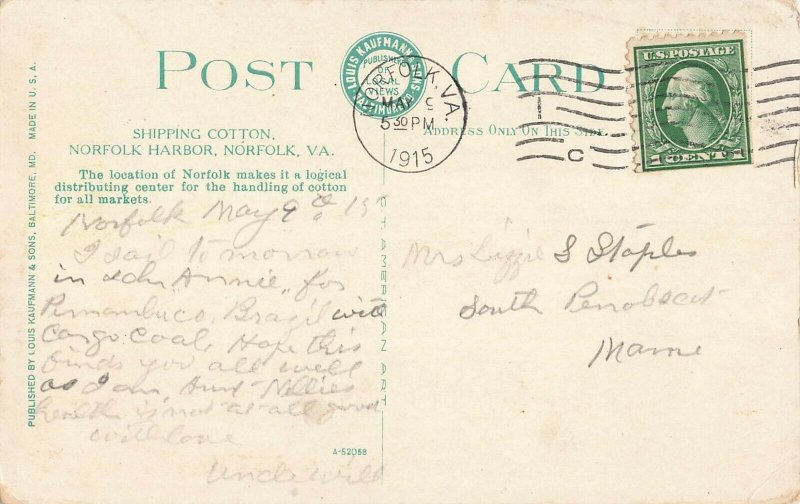 POST CARD
LOUIS KAUFMANN & SONS
PUBLISHERS
OF
LOCAL
VIEWS
BALTIMORE, MD.
NORFOLK, VA.
MAY 9
5 30 PM
1915
C
U.S. POSTAGE
1 CENT 1
ADDRESS ONLY ON THIS SIDE.
SHIPPING COTTON,
NORFOLK HARBOR, NORFOLK, VA.
The location of Norfolk makes it a logical
distributing center for the handling of cotton
for all markets.
Norfolk May 9th 15
I sail tomorrow
in Annie, for
Pernambuco, Brasil with
Cargo Coal, Hope this
finds you all well
as I am, Aunt Nellies
health is not at all good
with love
Uncle Will
Mrs Lizzie S Staples
South Penobscot
Maine
PUBLISHED BY LOUIS KAUFMANN & SONS, BALTIMORE, MD. MADE IN U. S. A.
AMERICAN ART
A-52058